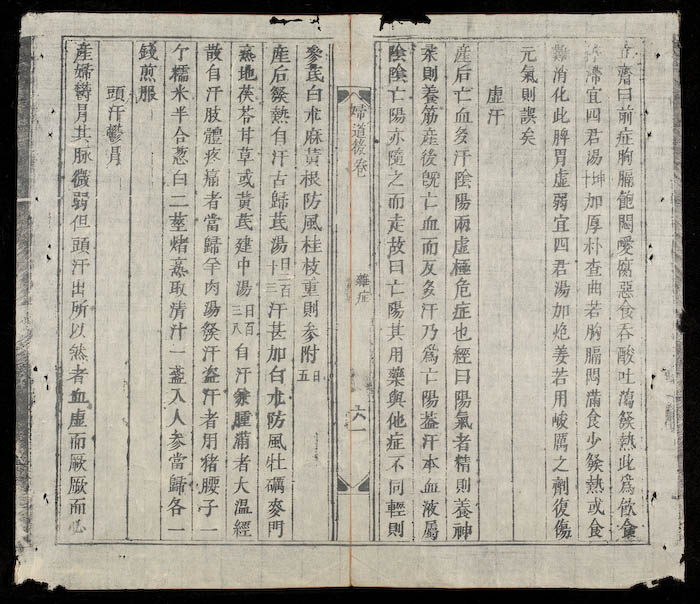 齋曰前症胸膈飽悶噯腐惡食吞酸吐瀉發熱此為飲食
滯宜四君湯坤十加厚朴查曲若胸膈悶滿食少發熱或食
難消化此脾胃虛弱宜四君湯加炮姜若用峻厲之劑復傷
元氣則誤矣
虛汗
產后亡血多汗陰陽兩虛極危症也經曰陽氣者精則養神
柔則養筋產後既亡血而反多汗乃為亡陽葢汗本血液屬
陰陰亡陽亦隨之而走故曰亡陽其用藥與他症不同輕則
婦道後卷 雜症 六一
參芪白朮麻黃根防風桂枝重則參附日五
產后發熱自汗古歸芪湯日二百十三汗甚加白朮防風牡礪麥門
熟地茯苓甘草或黃芪建中湯日百三八自汗兼腫滿者大溫經
散自汗肢體疼痛者當歸羊肉湯發汗盜汗者用猪腰子一
个糯米半合葱白二莖煑熟取清汁一盞入人參當歸各一
錢煎服
頭汗鬱冐
產婦鬱冐其脉微弱但頭汗出所以然者血虛而厥厥而必